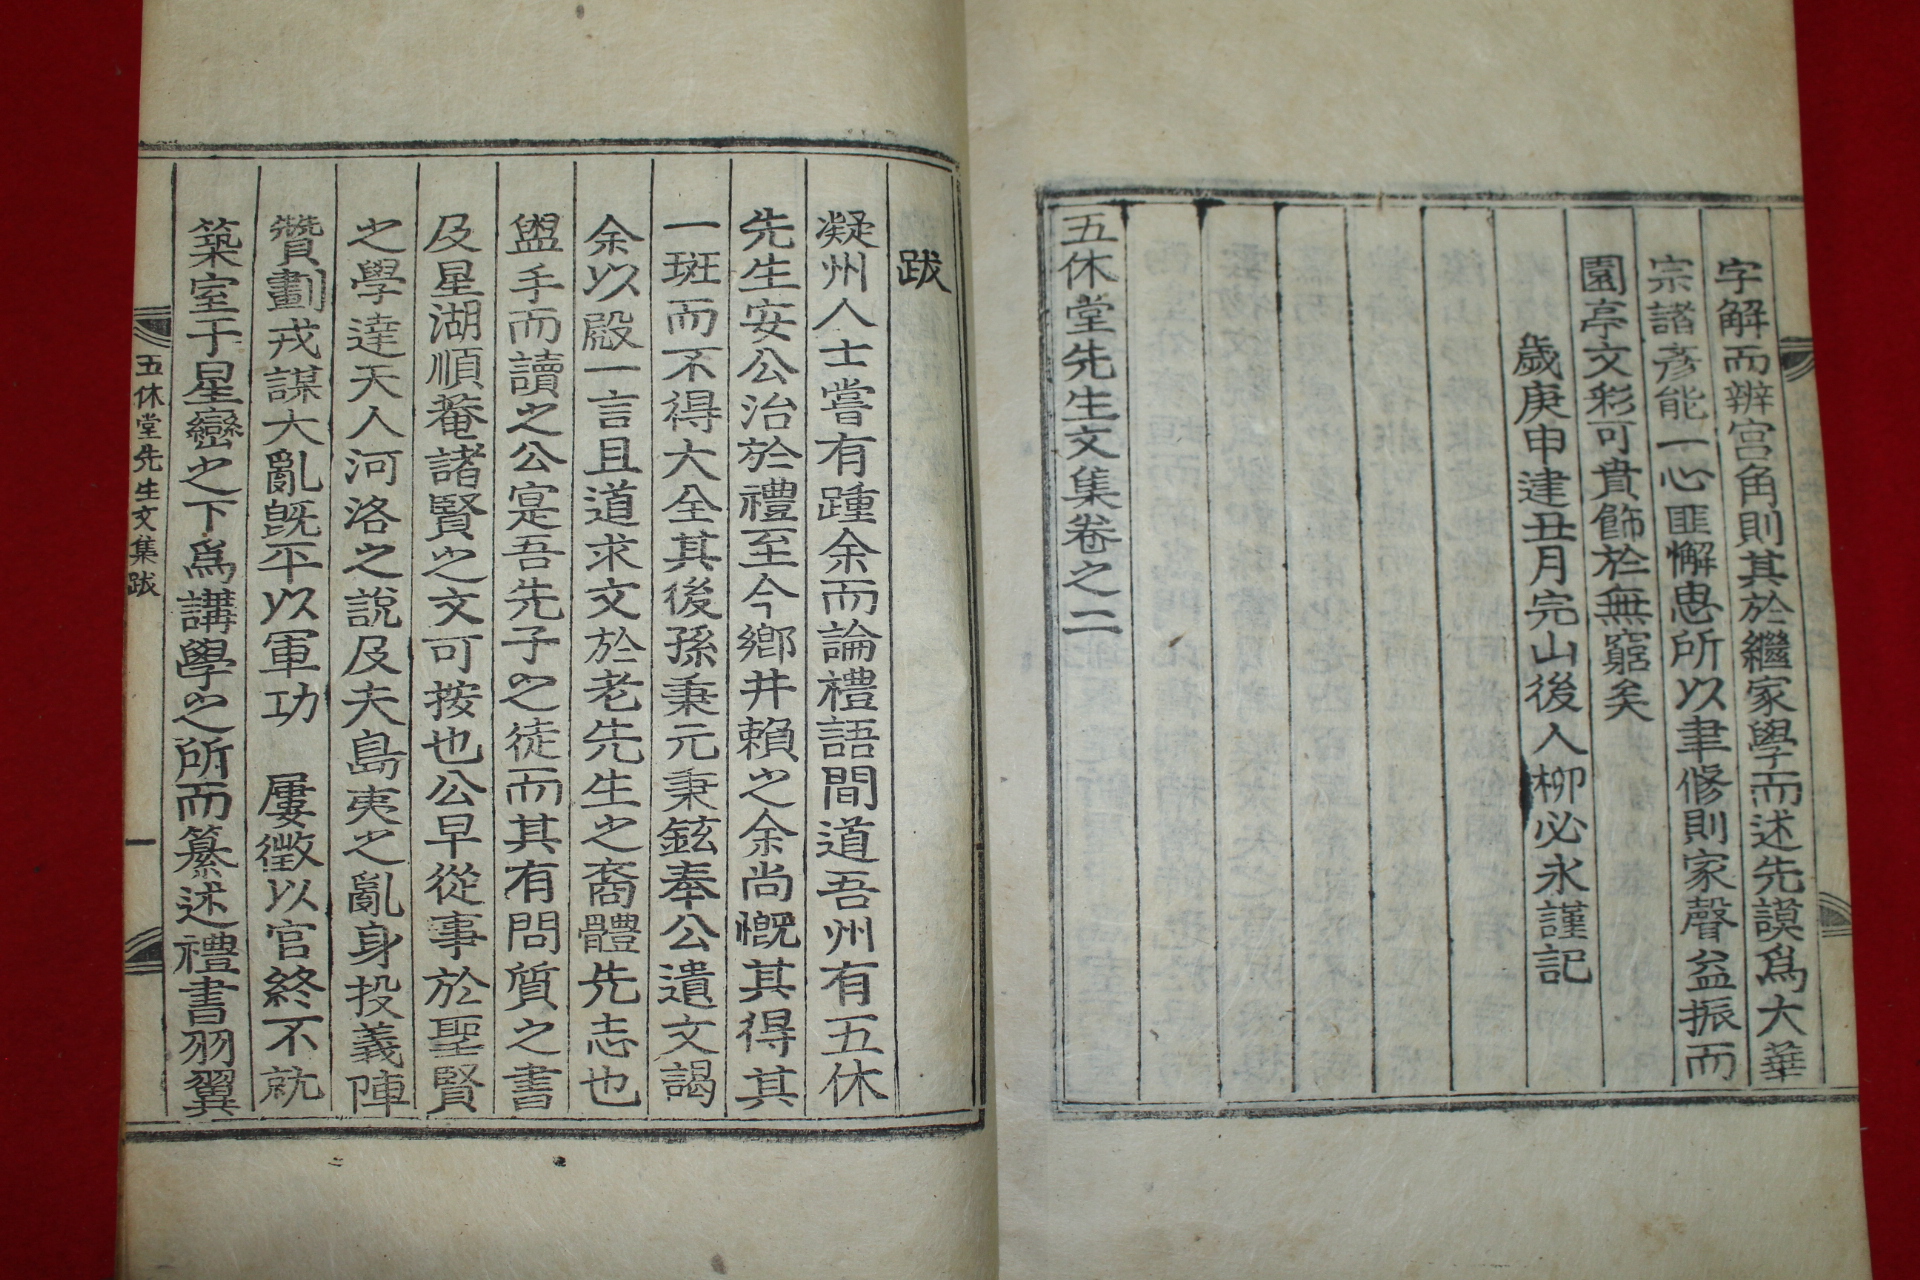 字解而辨宮角則其於繼家學而述先謨爲大華
宗諸彦能一心匪懈恵所以聿修則家聲益振而
園亭文彩可賁飾於無窮矣
歲庚申建丑月完山後人柳必永謹記
五休堂先生文集卷之二
跋
凝州人士嘗有踵余而論禮語間道吾州有五休
先生安公治於禮至今鄕井賴之余尚慨其得其
一斑而不得大全其後孫秉元秉鉉奉公遺文謁
余以殿一言且道求文於老先生之裔體先志也
盥手而讀之公寔吾先子之徒而其有問質之書
及星湖順菴諸賢之文可按也公早從事於聖賢
之學達天人河洛之說及夫島夷之亂身投義陣
贊劃戎謀大亂旣平以軍功 屢徵以官終不就
築室于星巒之下爲講學之所而纂述禮書羽翼
五休堂先生文集跋
一